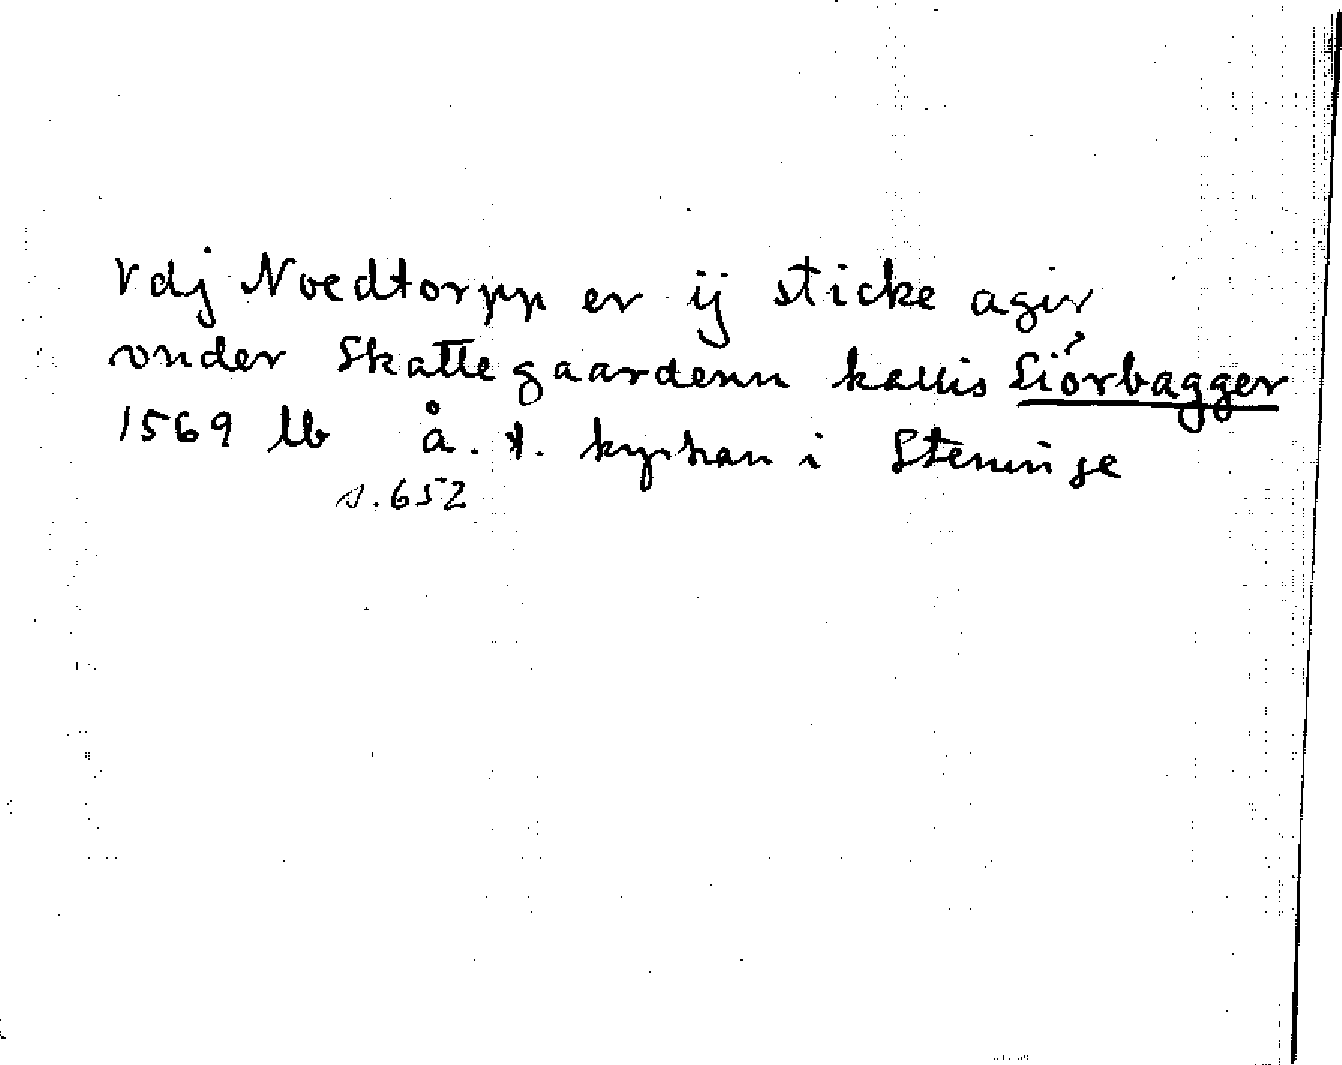 Vdj Noedtorpp er ij sticke agir
vnder Skattegaardenn kallis Siórbagger
1569 lb å. t. kyrkan i Steninge
s. 652